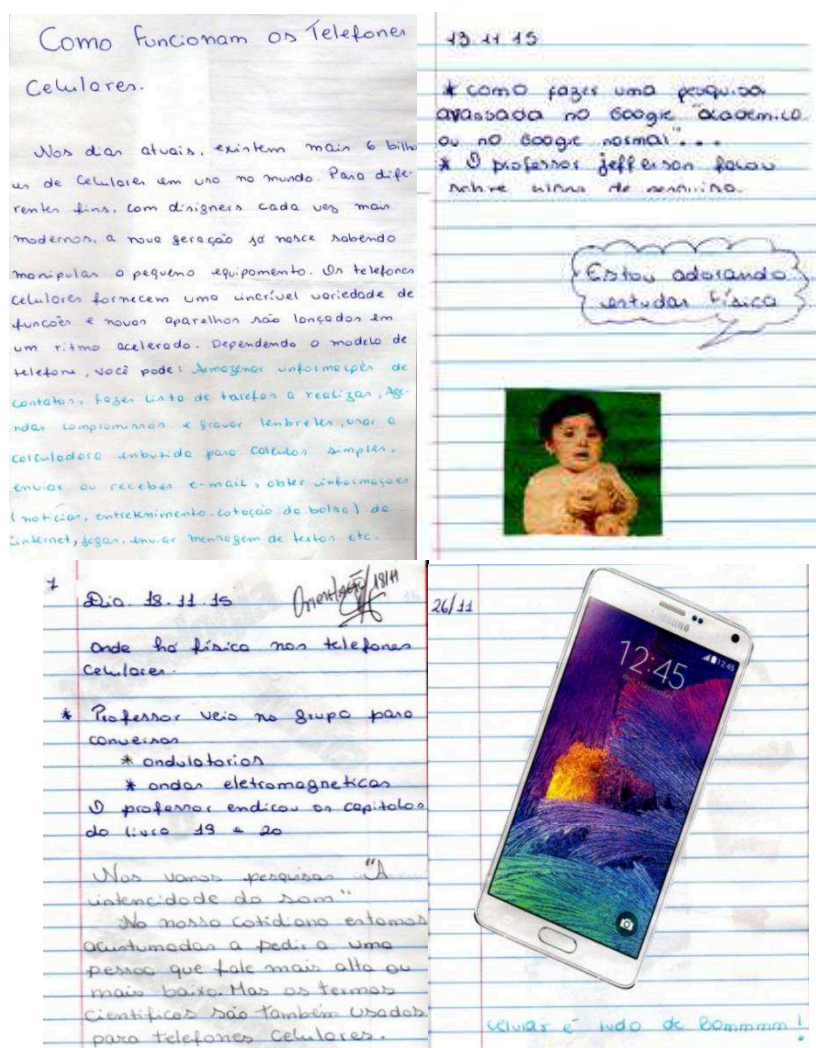 Como Funcionam os Telefones
Celulares.
Nos dias atuais, existem mais 6 bilho
es de Celulares em uso no mundo. Para dife-
rentes fins, com disigners cada vez mais
modernos, a nova geração já nasce sabendo
manipular o pequeno equipamento. Os telefones
celulares fornecem uma incrível variedade de
funcoẽs e novos aparelhos são lançados em
um ritmo acelerado. Dependendo o modelo de
telefone, você pode: Armazenar informações de
contatos, fazer lista de tarefas a realizar, Age-
ndar compromissos e gravar lenbretes, usar a
calculadora enbutida para cálculos simples,
enviar ou receber e-mail, obter informações
(notícias, entretenimento, cotação da bolsa) da
internet, jogar, enviar mensagem de textos etc.
13.11.15
* como fazer uma pesquisa
avansada no Google "academico
ou no Google normal"...
* O professor jefferson falou
sobre de
Estou adorando
estudar Física
7
Dia. 18.11.15
Orientação 18/11
onde ha física nos telefones
Celulares.
* Professor veio no grupo para
conversar
* ondulatorias
* ondas eletromagneticas
O professor endicou os capitolos
do livro 19 e 20
Nos vamos pesquisar "A
intencidade do som"
No nosso cotidiano estamos
acustumados a pedir a uma
pessoa que fale mais alto ou
mais baixo. Mas os termos
Científicos são também usados
para telefones Celulares.
26/11
SAMSUNG
12:45
12:45
celular é tudo de Bommmm!